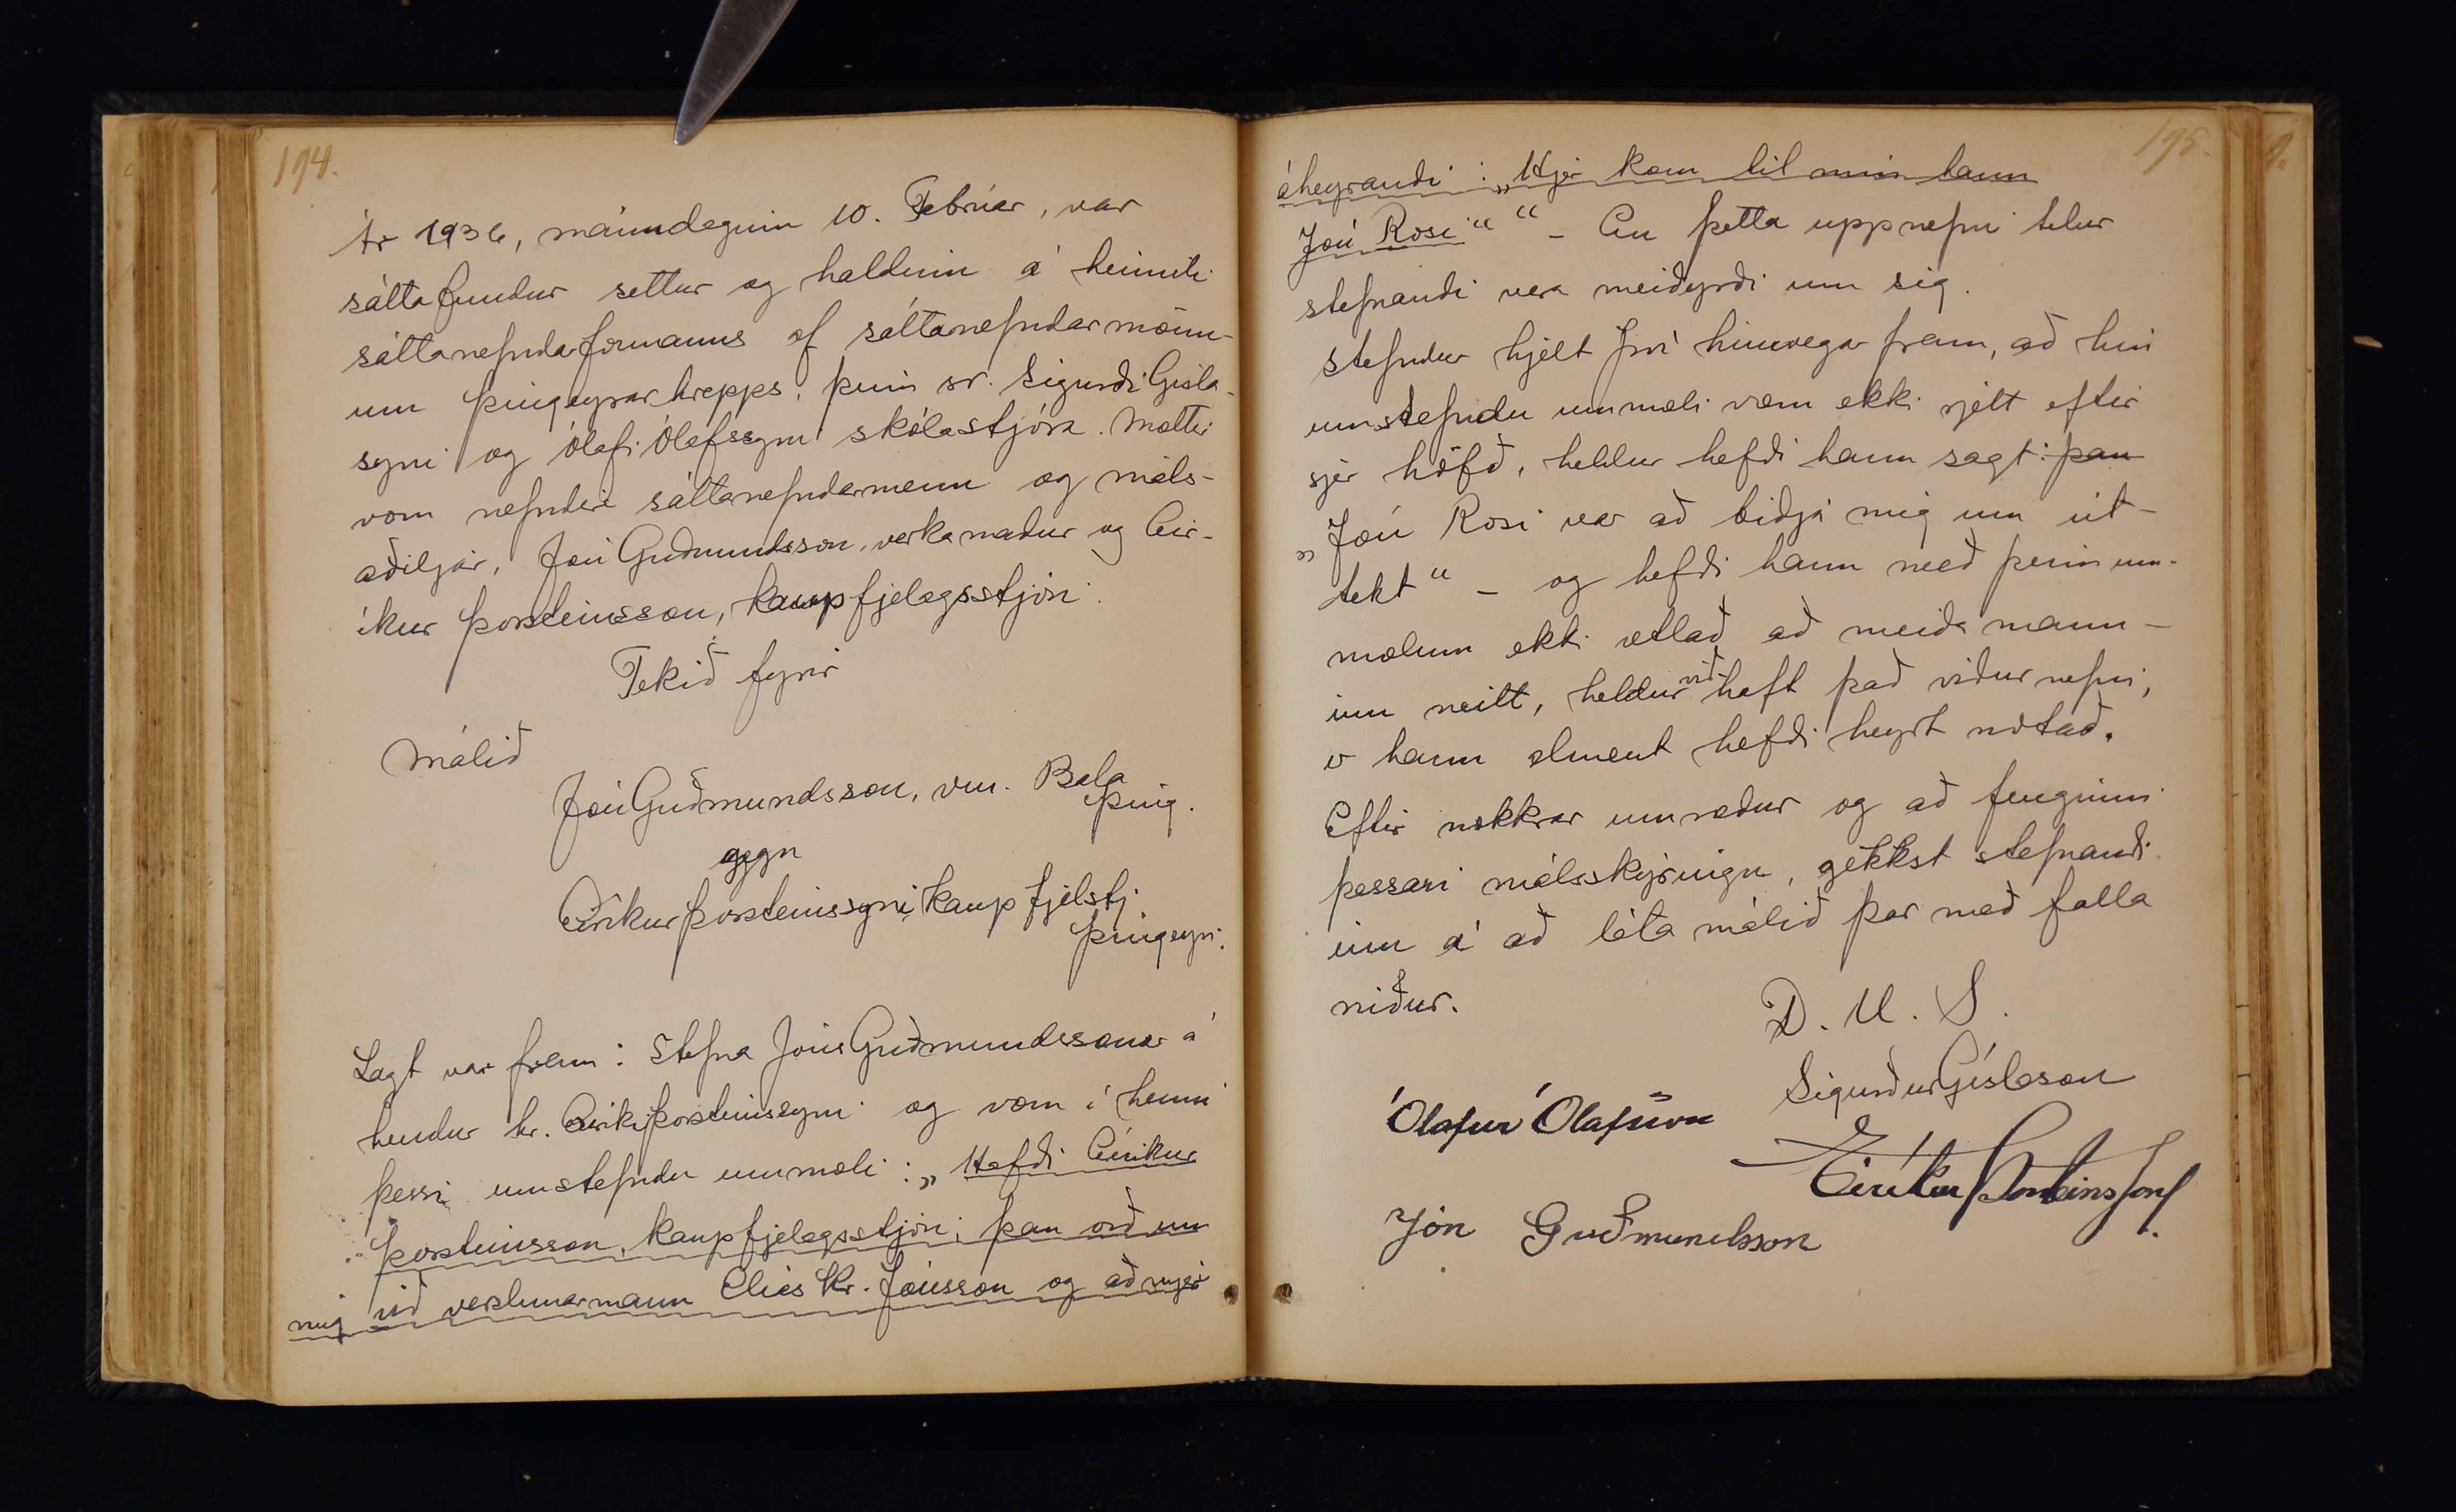 194.
Ár 1936, mánudaginn 10. Febrúar, var
sáttafundur settur og haldinn á heimili
sáttanefndarformanns af sáttanefndarmönn-
um Þingeyrarhrepps, þeim sr. Sigurði Gísla-
syni og Ólafi Ólafssyni skólastjóra. Mættir
voru nefndir sáttanefndarmenn og máls-
aðiljar, Jón Guðmundsson, verkamaður og Eir-
íkur Þorsteinsson, kaupfjelagsstjóri.
Tekið fyrir
Málið
Jón Guðmundsson, vm. Bala
Þing.
gegn
Eiríkur Þorsteinssyni, kaupfjelstj.
Þingeyri.
Lagt var fram: Stefna Jóns Guðmundssonar á
hendur hr. Eiríki Þorsteinssyni og voru í henni
þessi umstefndu ummæli: „Hafði Eiríkur
Þorsteinsson, kaupfjelagsstjóri, þau orð um
mig við verslunarmann Elías Kr. Jónsson og að mjer
195.
áheyrandi: „Hjer kom til mín hann
Jón Rosi““ - En þetta uppnefni telur
stefnandi vera meiðyrði um sig.
Stefndur hjelt því hinsvegar fram, að hin
umstefndu ummæli væru ekki rjett eftir
sjer höfð, heldur hefði hann sagt: þau
„Jón Rosi var að biðja mig um út-
tekt“ - og hefði hann með þeim um-
mælum ekki ætlað að meiða mann-
inn neitt, heldur við haft það viðurnefni,
er hann alment hefði heyrt notað.
Eftir nokkrar umræður og að fenginni
þessari málsskýringu, gekkst stefnandi
inn á að láta málið þar með falla
niður.
D. U. S.
Sigurður Gíslason
Ólafur Ólafsson
Eiríkur Þorsteinsson
Jón Guðmundsson